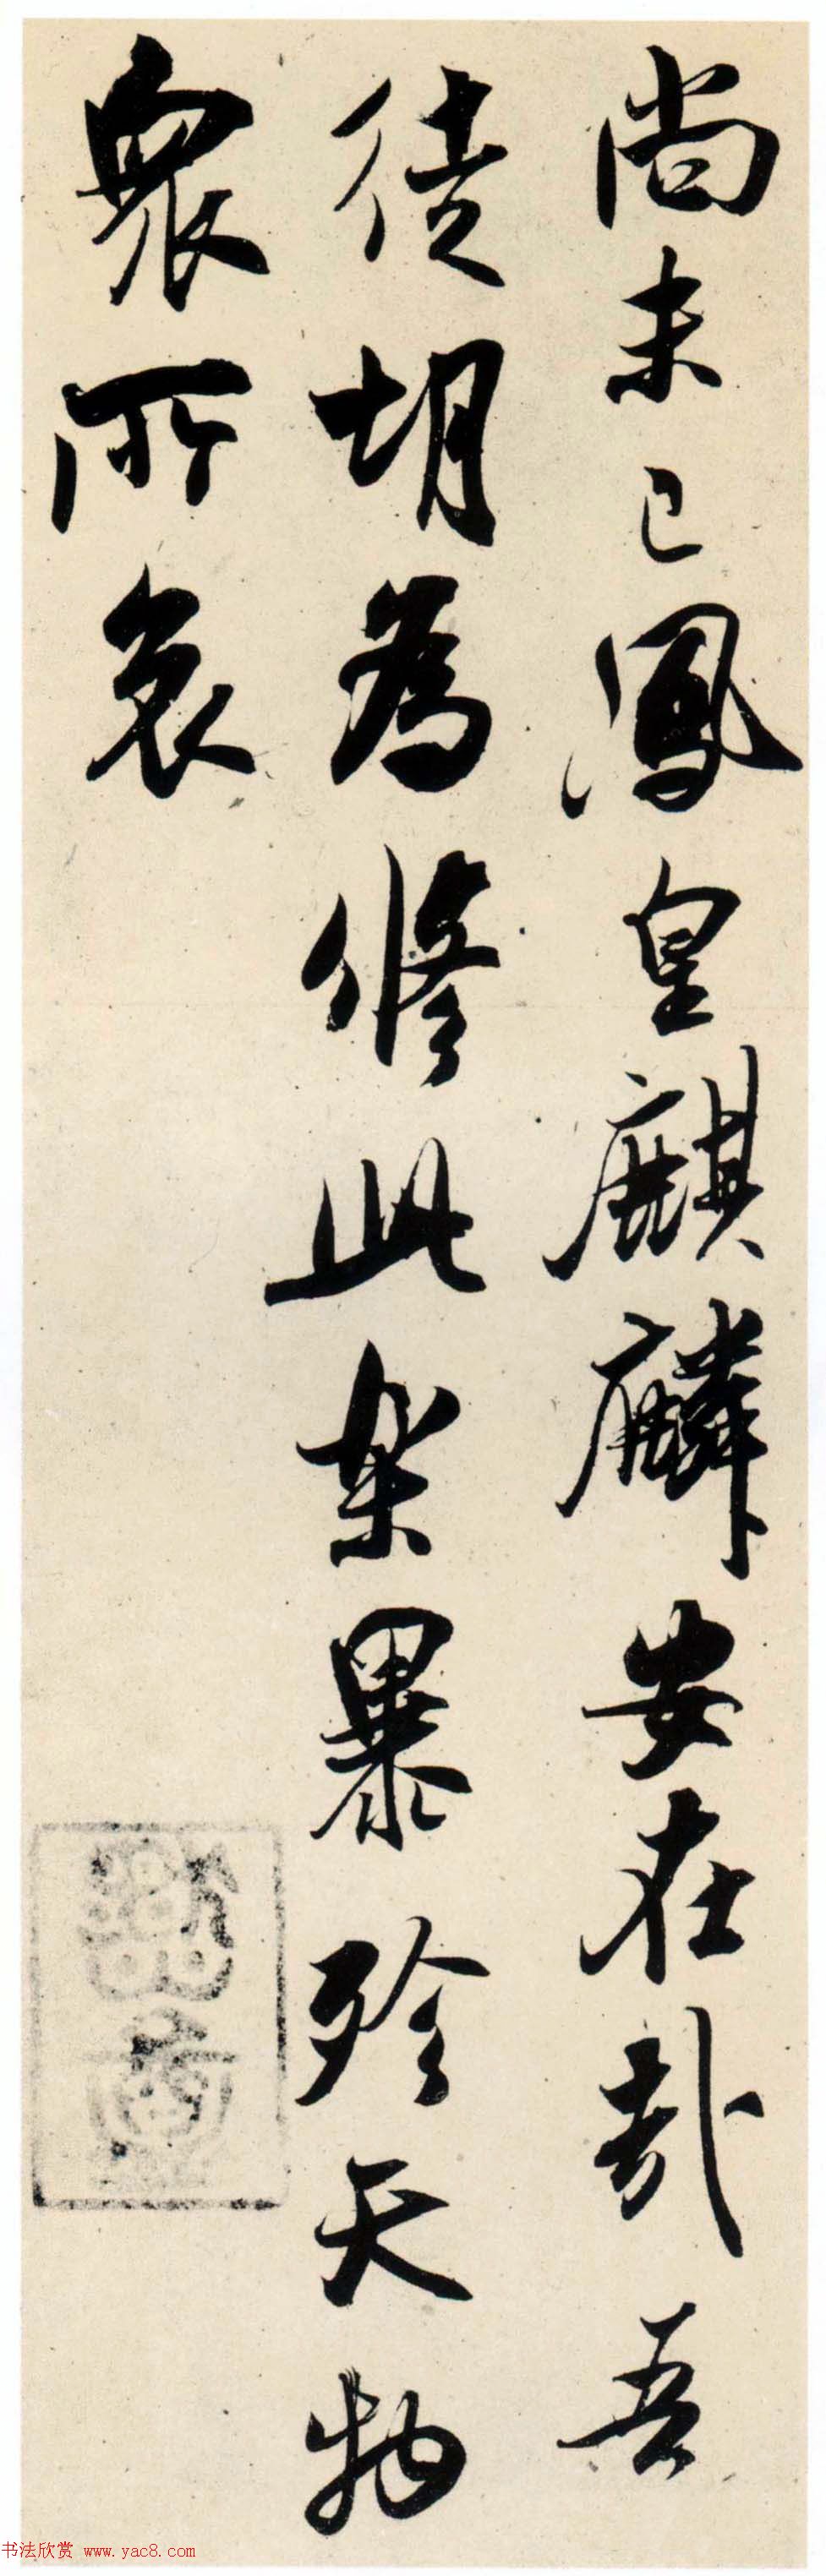 尚未已鳳皇麒麟安在哉吾
徒胡為修此樂暴殄天物
衆所哀
书法欣赏 www.yac8.com